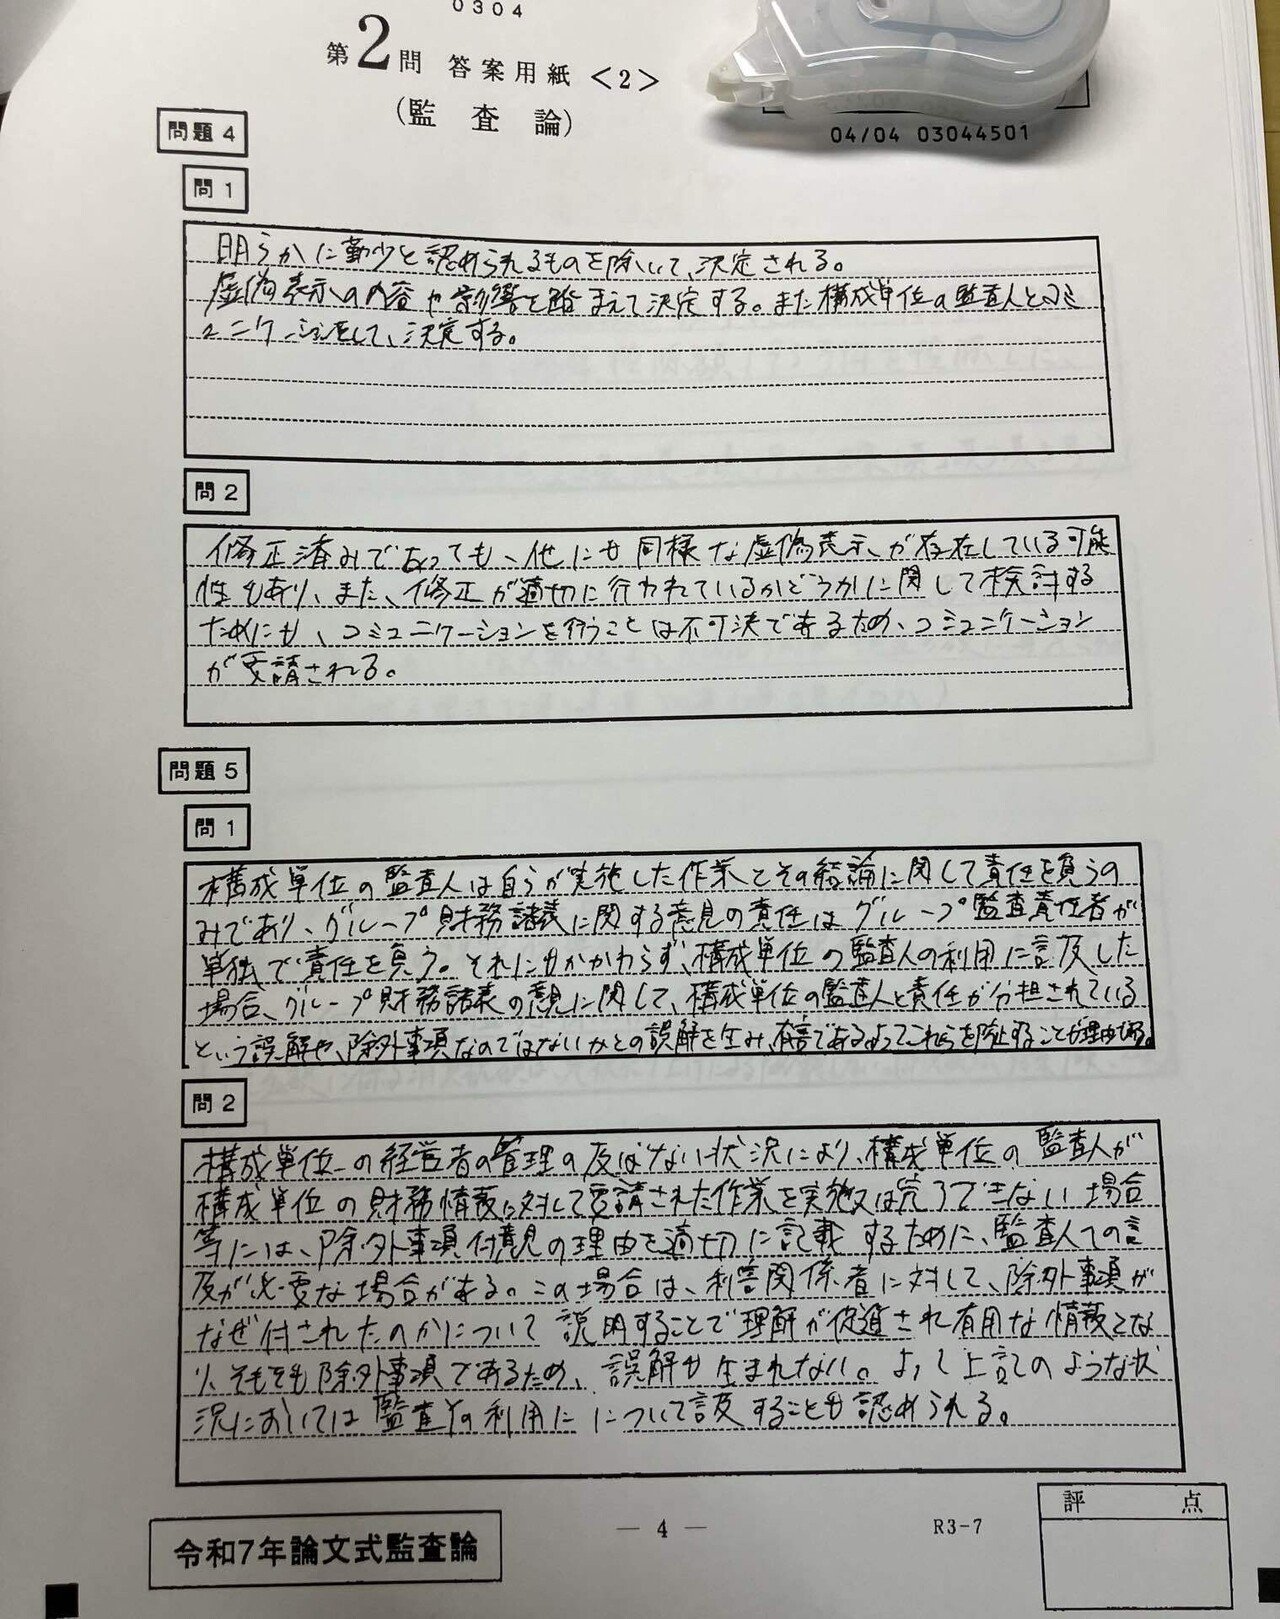 0304
第2問 答案用紙<2>
(監査論)
04/04 03044501
問題4
問1
明らかに勤少と認められるものを除いて、決定される。
虚偽表示の内容や影響を踏まえて決定する。また構成単位の監査人とコミ
ュニケーションをして、決定する。
問2
修正済みであっても、他にも同様な虚偽表示が存在している可能
性もあり、また、修正が適切に行われているかどうかに関して検討する
ためにも、コミュニケーションを行うことは不可決であるため、コミュニケーション
が要請される。
問題5
問1
構成単位の監査人は自らが実施した作業とその結論に関して責任を負うの
みであり、グループ財務諸義に関する意見の責任はグループ監査責任者が
単独で責任を負う。それにもかかわらず、構成単位の監査人の利用に言及した
場合、グループ財務諸義の意見に関して、構成単位の監査人と責任が分担されている
という誤解や、除外事項なのではないかとの誤解を生み、有害であるよってこれらを防止することが理由である。
問2
構成単位の経営者の管理の及ばない状況により、構成単位の監査人が
構成単位の財務情報に対して要請された作業を実施又は完了できない場合
等には、除外事項付意見の理由を適切に記載するために、監査人への言
及が必要な場合がある。この場合は、利害関係者に対して、除外事項が
なぜ付されたのかについて説明することで理解が促進され有用な情報とな
り、そもそも除外事項であるため、誤解も生まれない。よって上記のような状
況においては監査人の利用にについて言及することも認められる。
評点
令和7年論文式監査論
— 4 —
R3-7